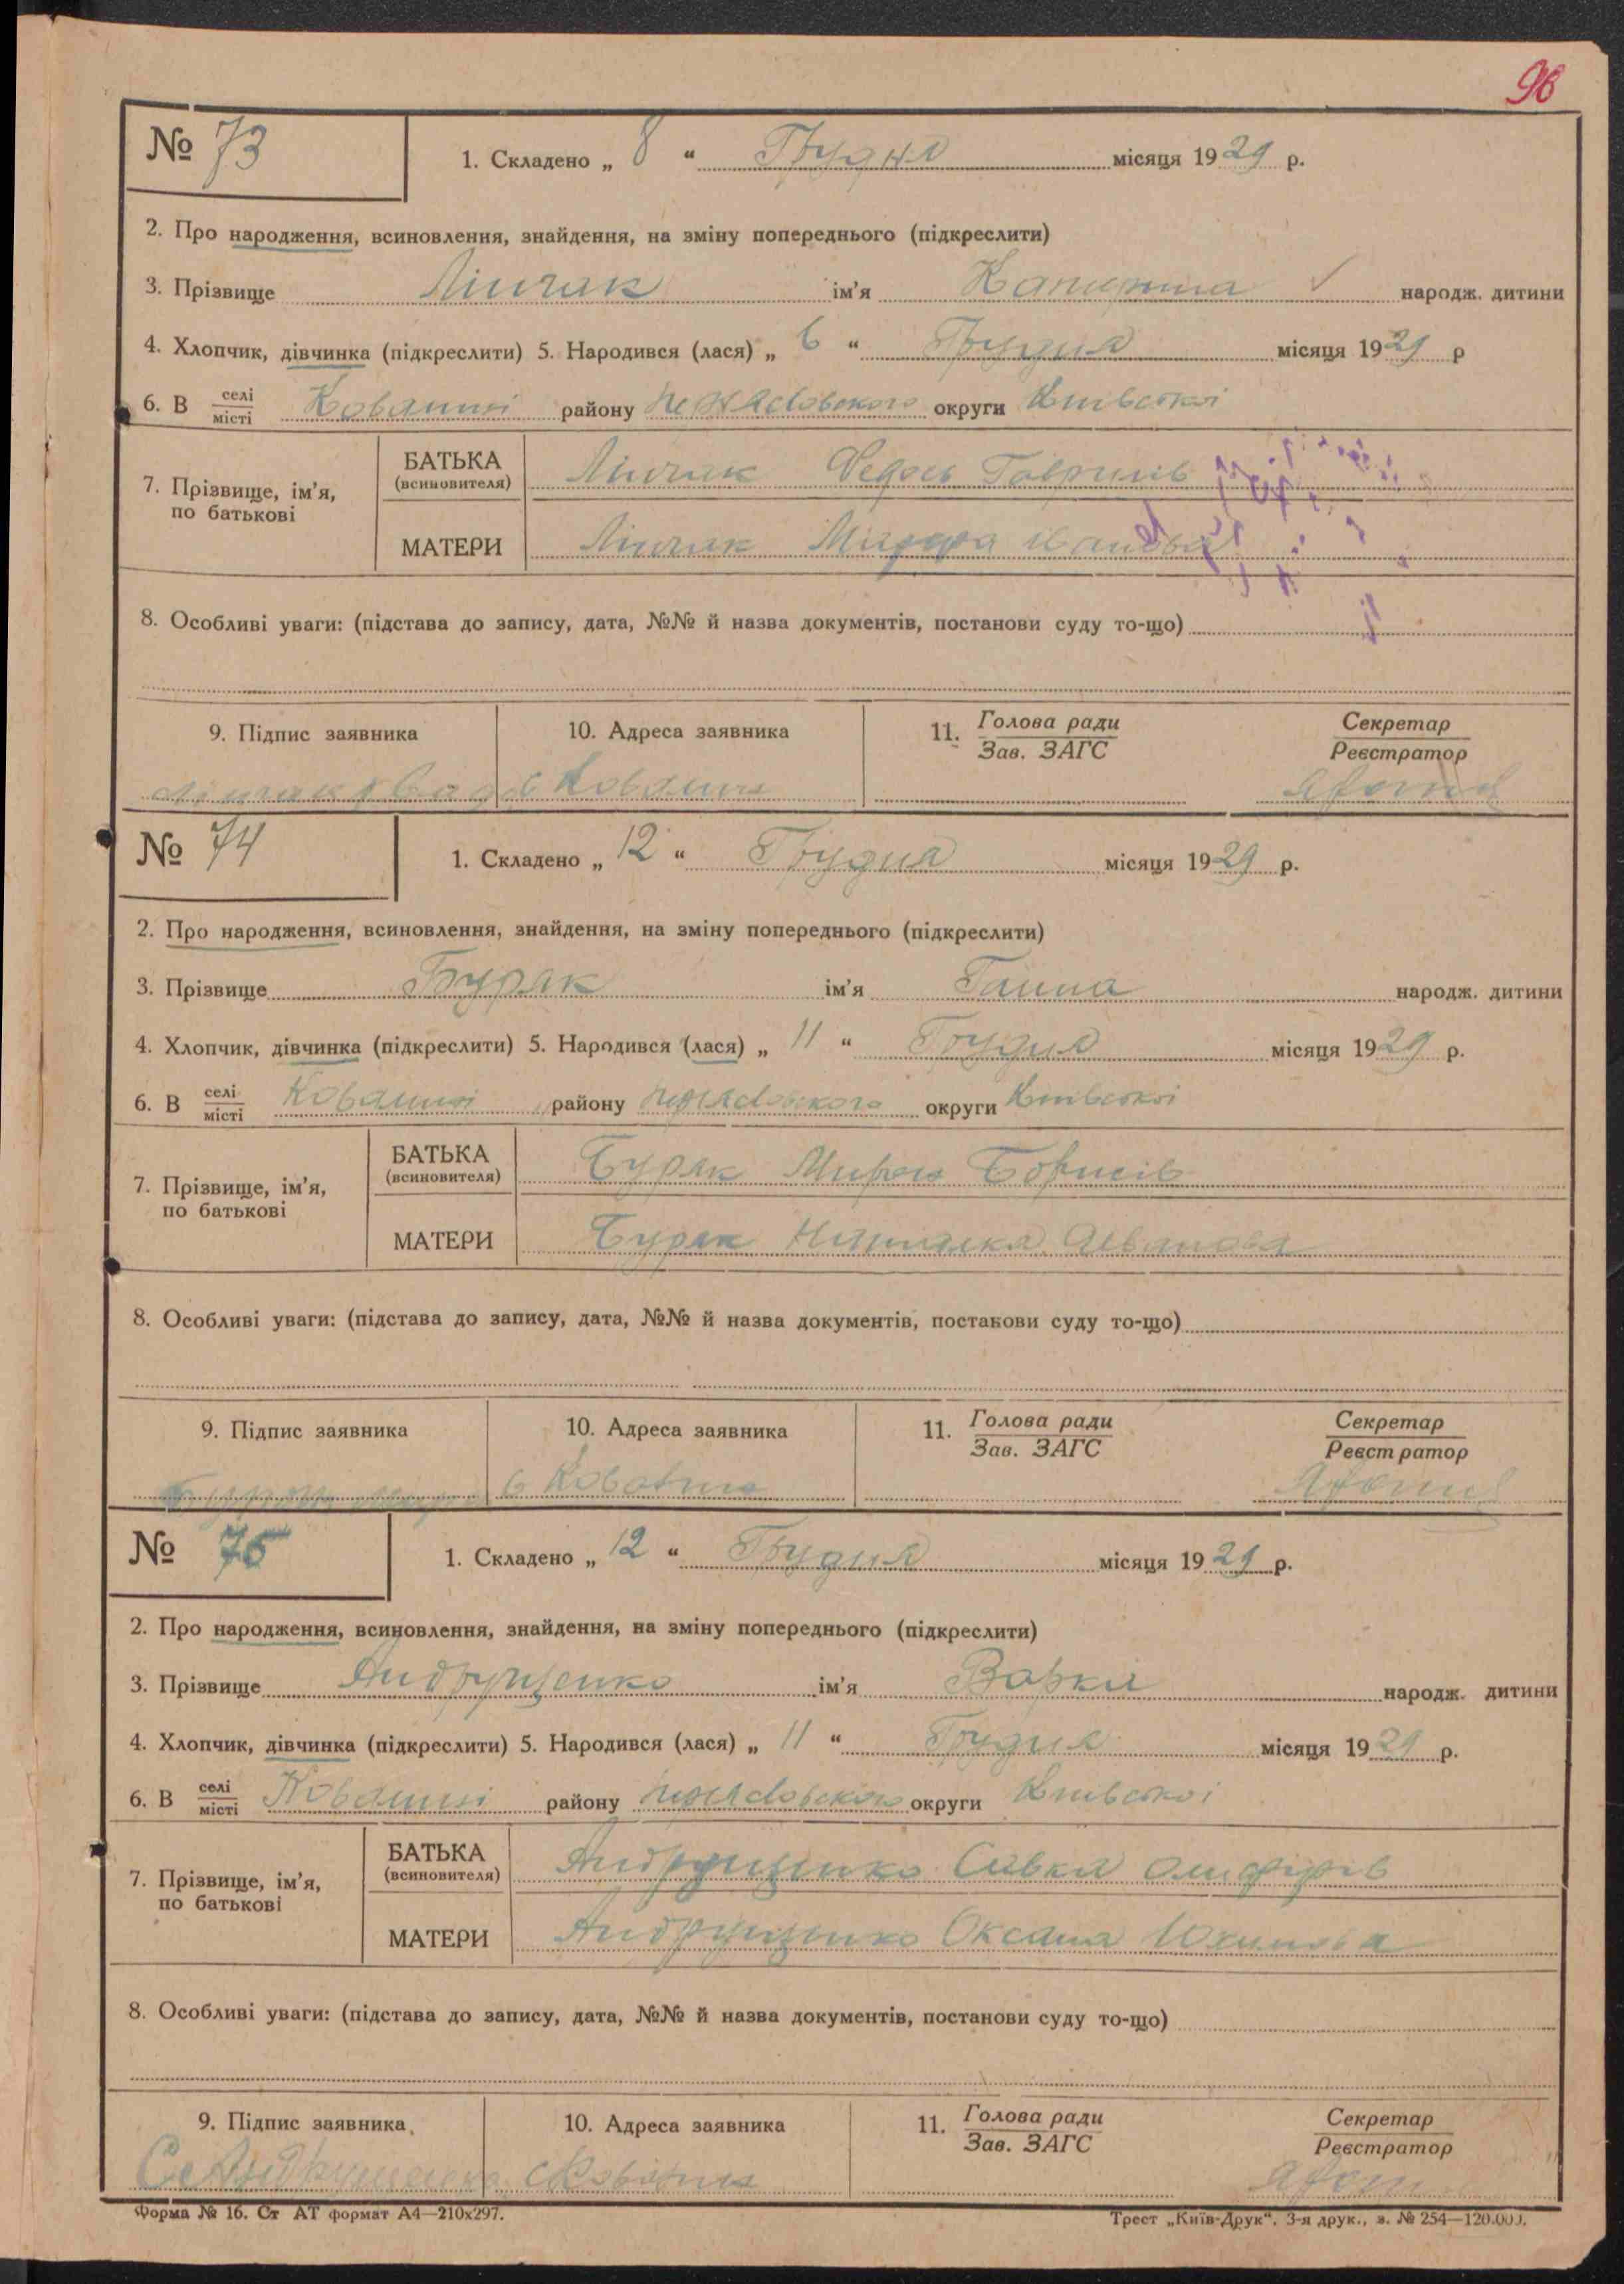 96
№ 73 1. Складено „ 8 “ Грудня місяця 1929 р.
2. Про народження, всиновлення, знайдення, на зміну попереднього (підкреслити)
3. Прізвище Лінчак ім'я Катерина народж. дитини
4. Хлопчик, дівчинка (підкреслити) 5. Народився (лася) „ 6 “ Грудня місяця 1929 р
6. В селі/місті Ковалині району округи Київської
7. Прізвище, ім'я, по батькові
БАТЬКА (всиновителя) Лінчак Федось Гаврилів
МАТЕРИ Лінчак Марфа Іванова
8. Особливі уваги: (підстава до запису, дата, №№ й назва документів, постанови суду то-що)
9. Підпис заявника 10. Адреса заявника 11. Голова ради/Зав. ЗАГС Секретар/Реєстратор
с Ковалин
№ 74 1. Складено „ 12 “ Грудня місяця 1929 р.
2. Про народження, всиновлення, знайдення, на зміну попереднього (підкреслити)
3. Прізвище Буряк ім'я Ганна народж. дитини
4. Хлопчик, дівчинка (підкреслити) 5. Народився (лася) „ 11 “ Грудня місяця 1929 р.
6. В селі/місті Ковалині району округи Київської
7. Прізвище, ім'я, по батькові
БАТЬКА (всиновителя) Буряк Мирон Борисів
МАТЕРИ Буряк
8. Особливі уваги: (підстава до запису, дата, №№ й назва документів, постанови суду то-що)
9. Підпис заявника 10. Адреса заявника 11. Голова ради/Зав. ЗАГС Секретар/Реєстратор
с Ковалин
№ 75 1. Складено „ 12 “ Грудня місяця 1929 р.
2. Про народження, всиновлення, знайдення, на зміну попереднього (підкреслити)
3. Прізвище Андрущенко ім'я Варка народж. дитини
4. Хлопчик, дівчинка (підкреслити) 5. Народився (лася) „ 11 “ Грудня місяця 1929 р.
6. В селі/місті Ковалині району округи Київської
7. Прізвище, ім'я, по батькові
БАТЬКА (всиновителя) Андрущенко Савка
МАТЕРИ Андрущенко Оксана Юхимова
8. Особливі уваги: (підстава до запису, дата, №№ й назва документів, постанови суду то-що)
9. Підпис заявника 10. Адреса заявника 11. Голова ради/Зав. ЗАГС Секретар/Реєстратор
С Андрущенко с Ковалин
Форма № 16. Ст АТ формат А4—210х297. Трест „Київ-Друк“. 3-я друк., з. № 254—120.000.